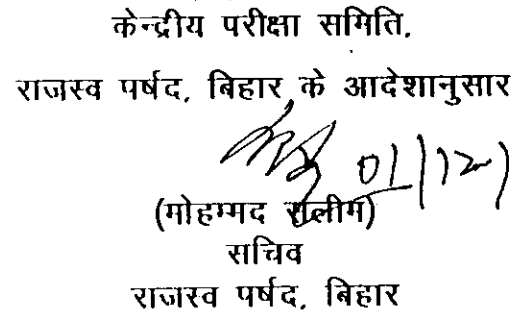 केन्द्रीय परीक्षा समिति,
राजस्व पर्षद, बिहार के आदेशानुसार
(मोहम्मद सलीम)
सचिव
राजस्व पर्षद, बिहार